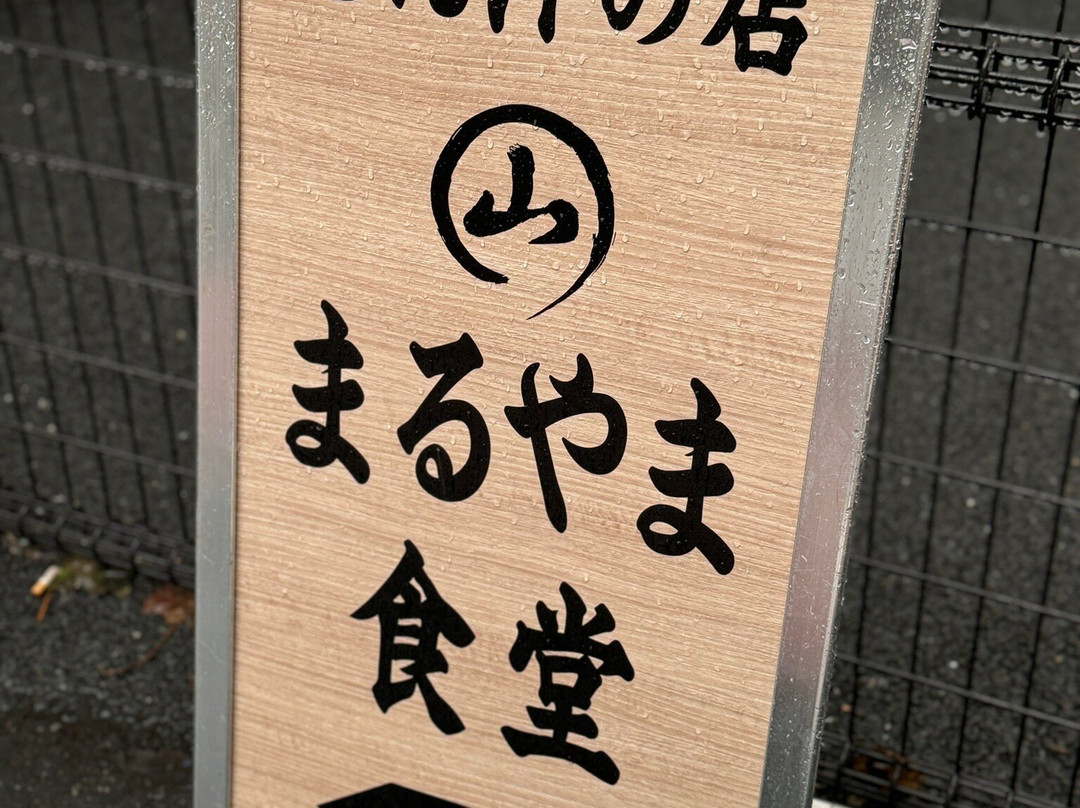 の店
山
まるやま
食堂